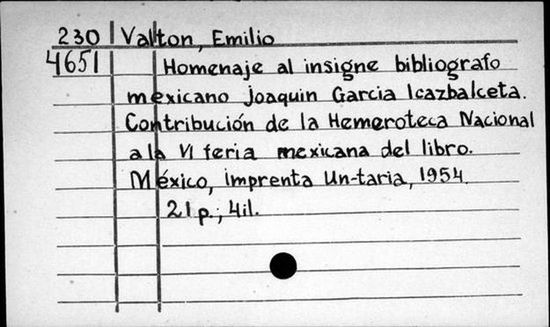 230 Valton, Emilio
4651 Homenaje al insigne bibliografo
mexicano Joaquin Garcia Icazbalceta.
Contribución de la Hemeroteca Nacional
a la VI feria mexicana del libro.
México, imprenta Un-taria, 1954.
21 p.; 4il.